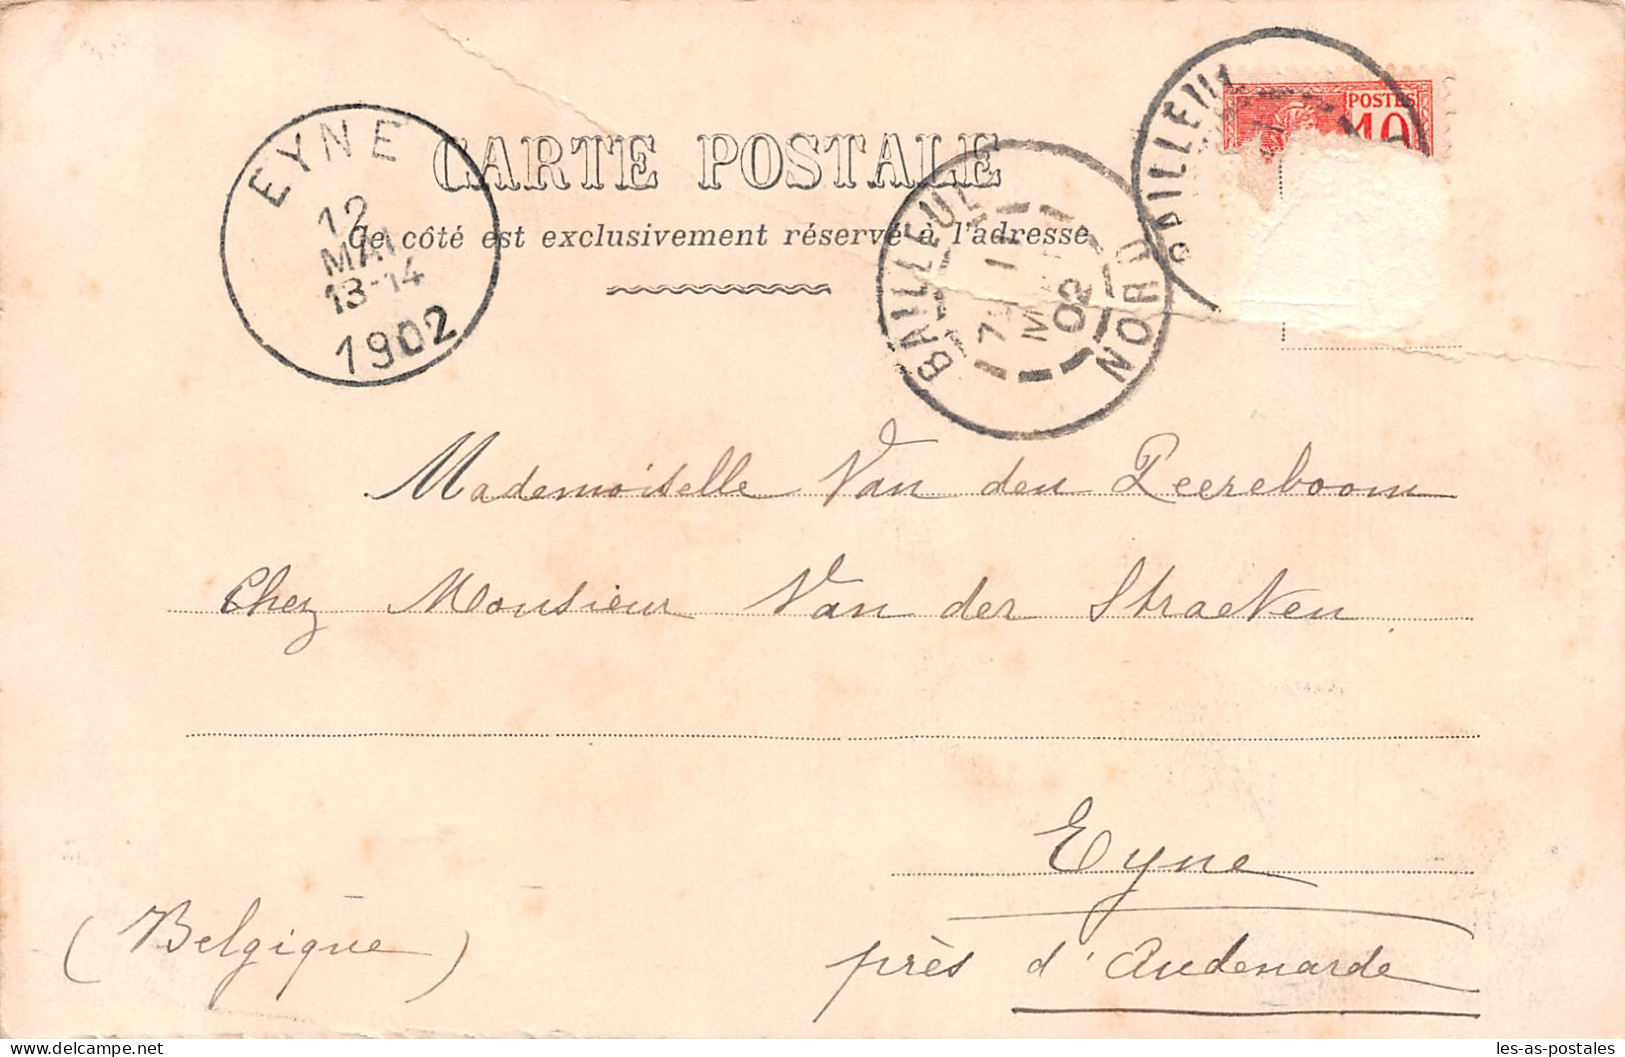 EYNE
12
MAI
13-14
1902
CARTE POSTALE
Ce côté est exclusivement réservé à l'adresse
BAILLEUL
11
02
NORD
BAILLEUL
POSTES
10
Mademoiselle Van den Peereboom
Chez Monsieur Van der Straeten
Eyne
près d'Audenarde
(Belgique)
les-as-postales